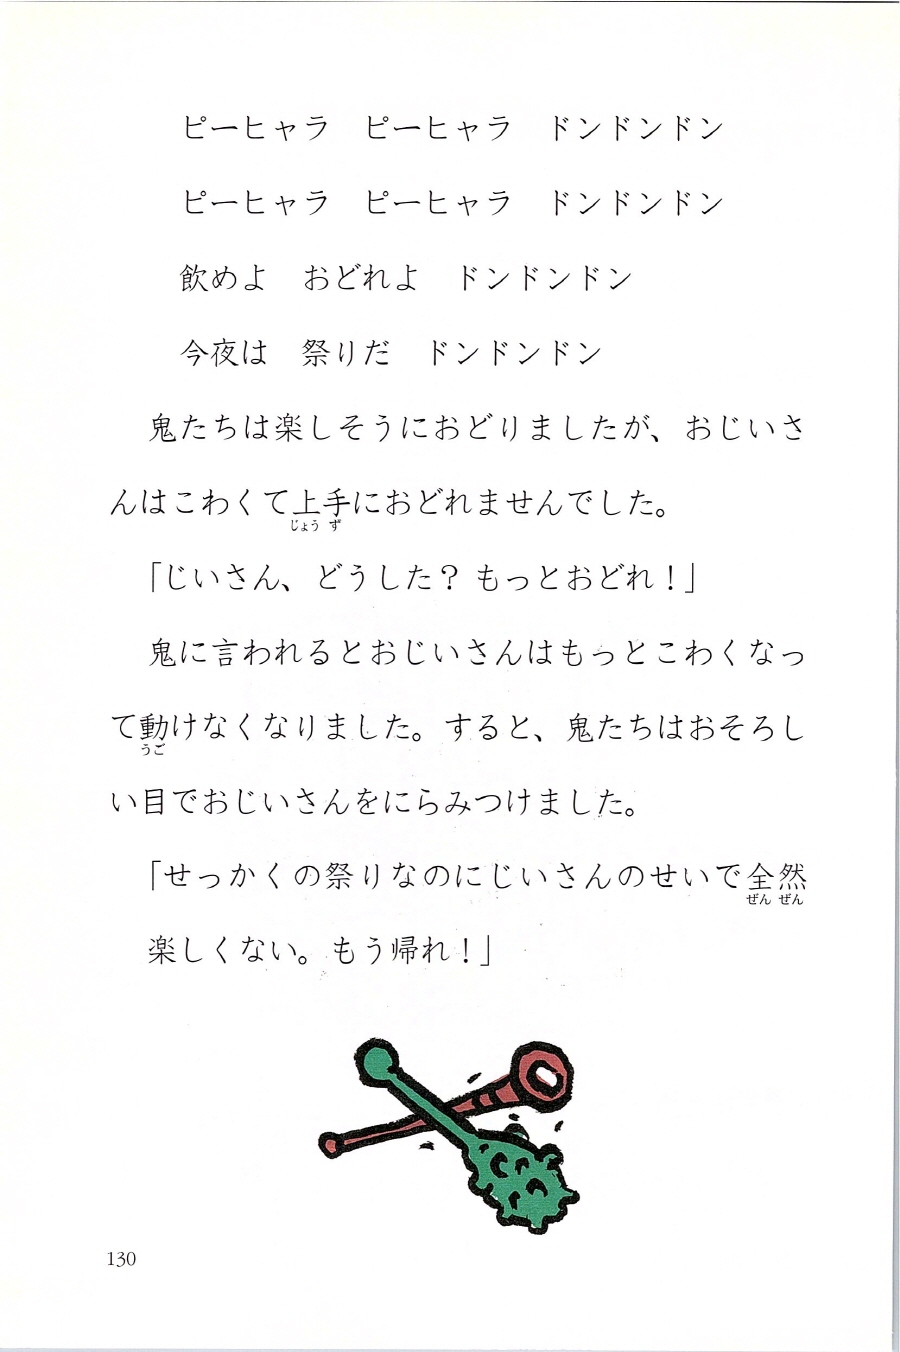 ピーヒャラ　ピーヒャラ　ドンドンドン
ピーヒャラ　ピーヒャラ　ドンドンドン
飲めよ　おどれよ　ドンドンドン
今夜は　祭りだ　ドンドンドン
鬼たちは楽しそうにおどりましたが、おじいさ
んはこわくて上手におどれませんでした。
じょう ず
「じいさん、どうした？ もっとおどれ！」
鬼に言われるとおじいさんはもっとこわくなっ
て動けなくなりました。すると、鬼たちはおそろし
うご
い目でおじいさんをにらみつけました。
「せっかくの祭りなのにじいさんのせいで全然
ぜん ぜん
楽しくない。もう帰れ！」
130